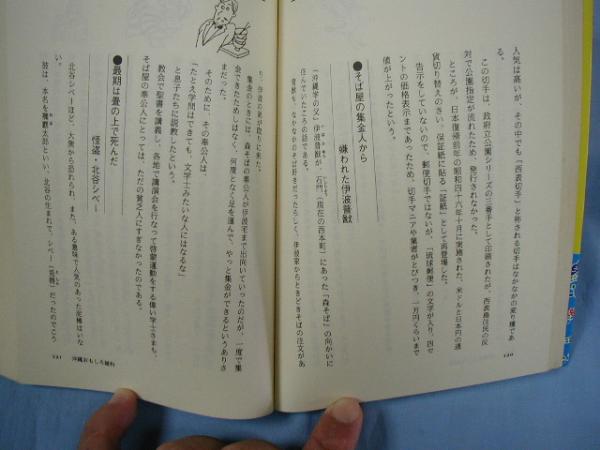 人気は高いが、その中でも「西表切手」と称される切手はなかなかの変り種であ
る。
この切手は、政府立公園シリーズの三番手として印刷されたが、西表島住民の反
対で公園指定が流れたため、発行されなかった。
ところが、日本復帰前年の昭和四十六年十月に実施された、米ドルと日本円の通
貨切り替えのさい、保証紙に貼る「証紙」として再登場した。
告示をしていないので、郵便切手ではないが、「琉球郵便」の文字が入り、四セ
ントの価格表示まであったため、切手マニアや業者がとびつき、一万円くらいまで
値が上がったという。
●そば屋の集金人から
嫌われた伊波普猷
〈沖縄学の父〉伊波普猷が、石門（現在の西本町）にあった「森そば」の向かいに
住んでいたころの話である。
普猷も、なかなかのそば好きだったらしく、伊波家からときどきそばの注文があ
120
り、普猷の弟が取りに来た。
集金のときには、森そばの奉公人が伊波宅まで出向いていったのだが、一度で集
金できたためしはなく、何度となく足を運んで、やっと集金ができるというありさ
まだった。
そのために、その奉公人は、
「たとえ学問はできても、文学士みたいな人にはなるな」
と息子たちに説教したという。
教会で聖書を講義し、各地で講演会を行なって啓蒙運動をする偉い学士さまも、
そば屋の奉公人にとっては、ただの貧乏人にすぎなかったのである。
●最期は畳の上で死んだ
怪盗・北谷シベー
北谷シベーほど、大衆から恐れられ、また、ある意味で人気のあった泥棒はいな
い。
彼は、本名を
太郎といい、北谷の生まれで、シベー
だったのでこう
121 沖縄おもしろ雑科